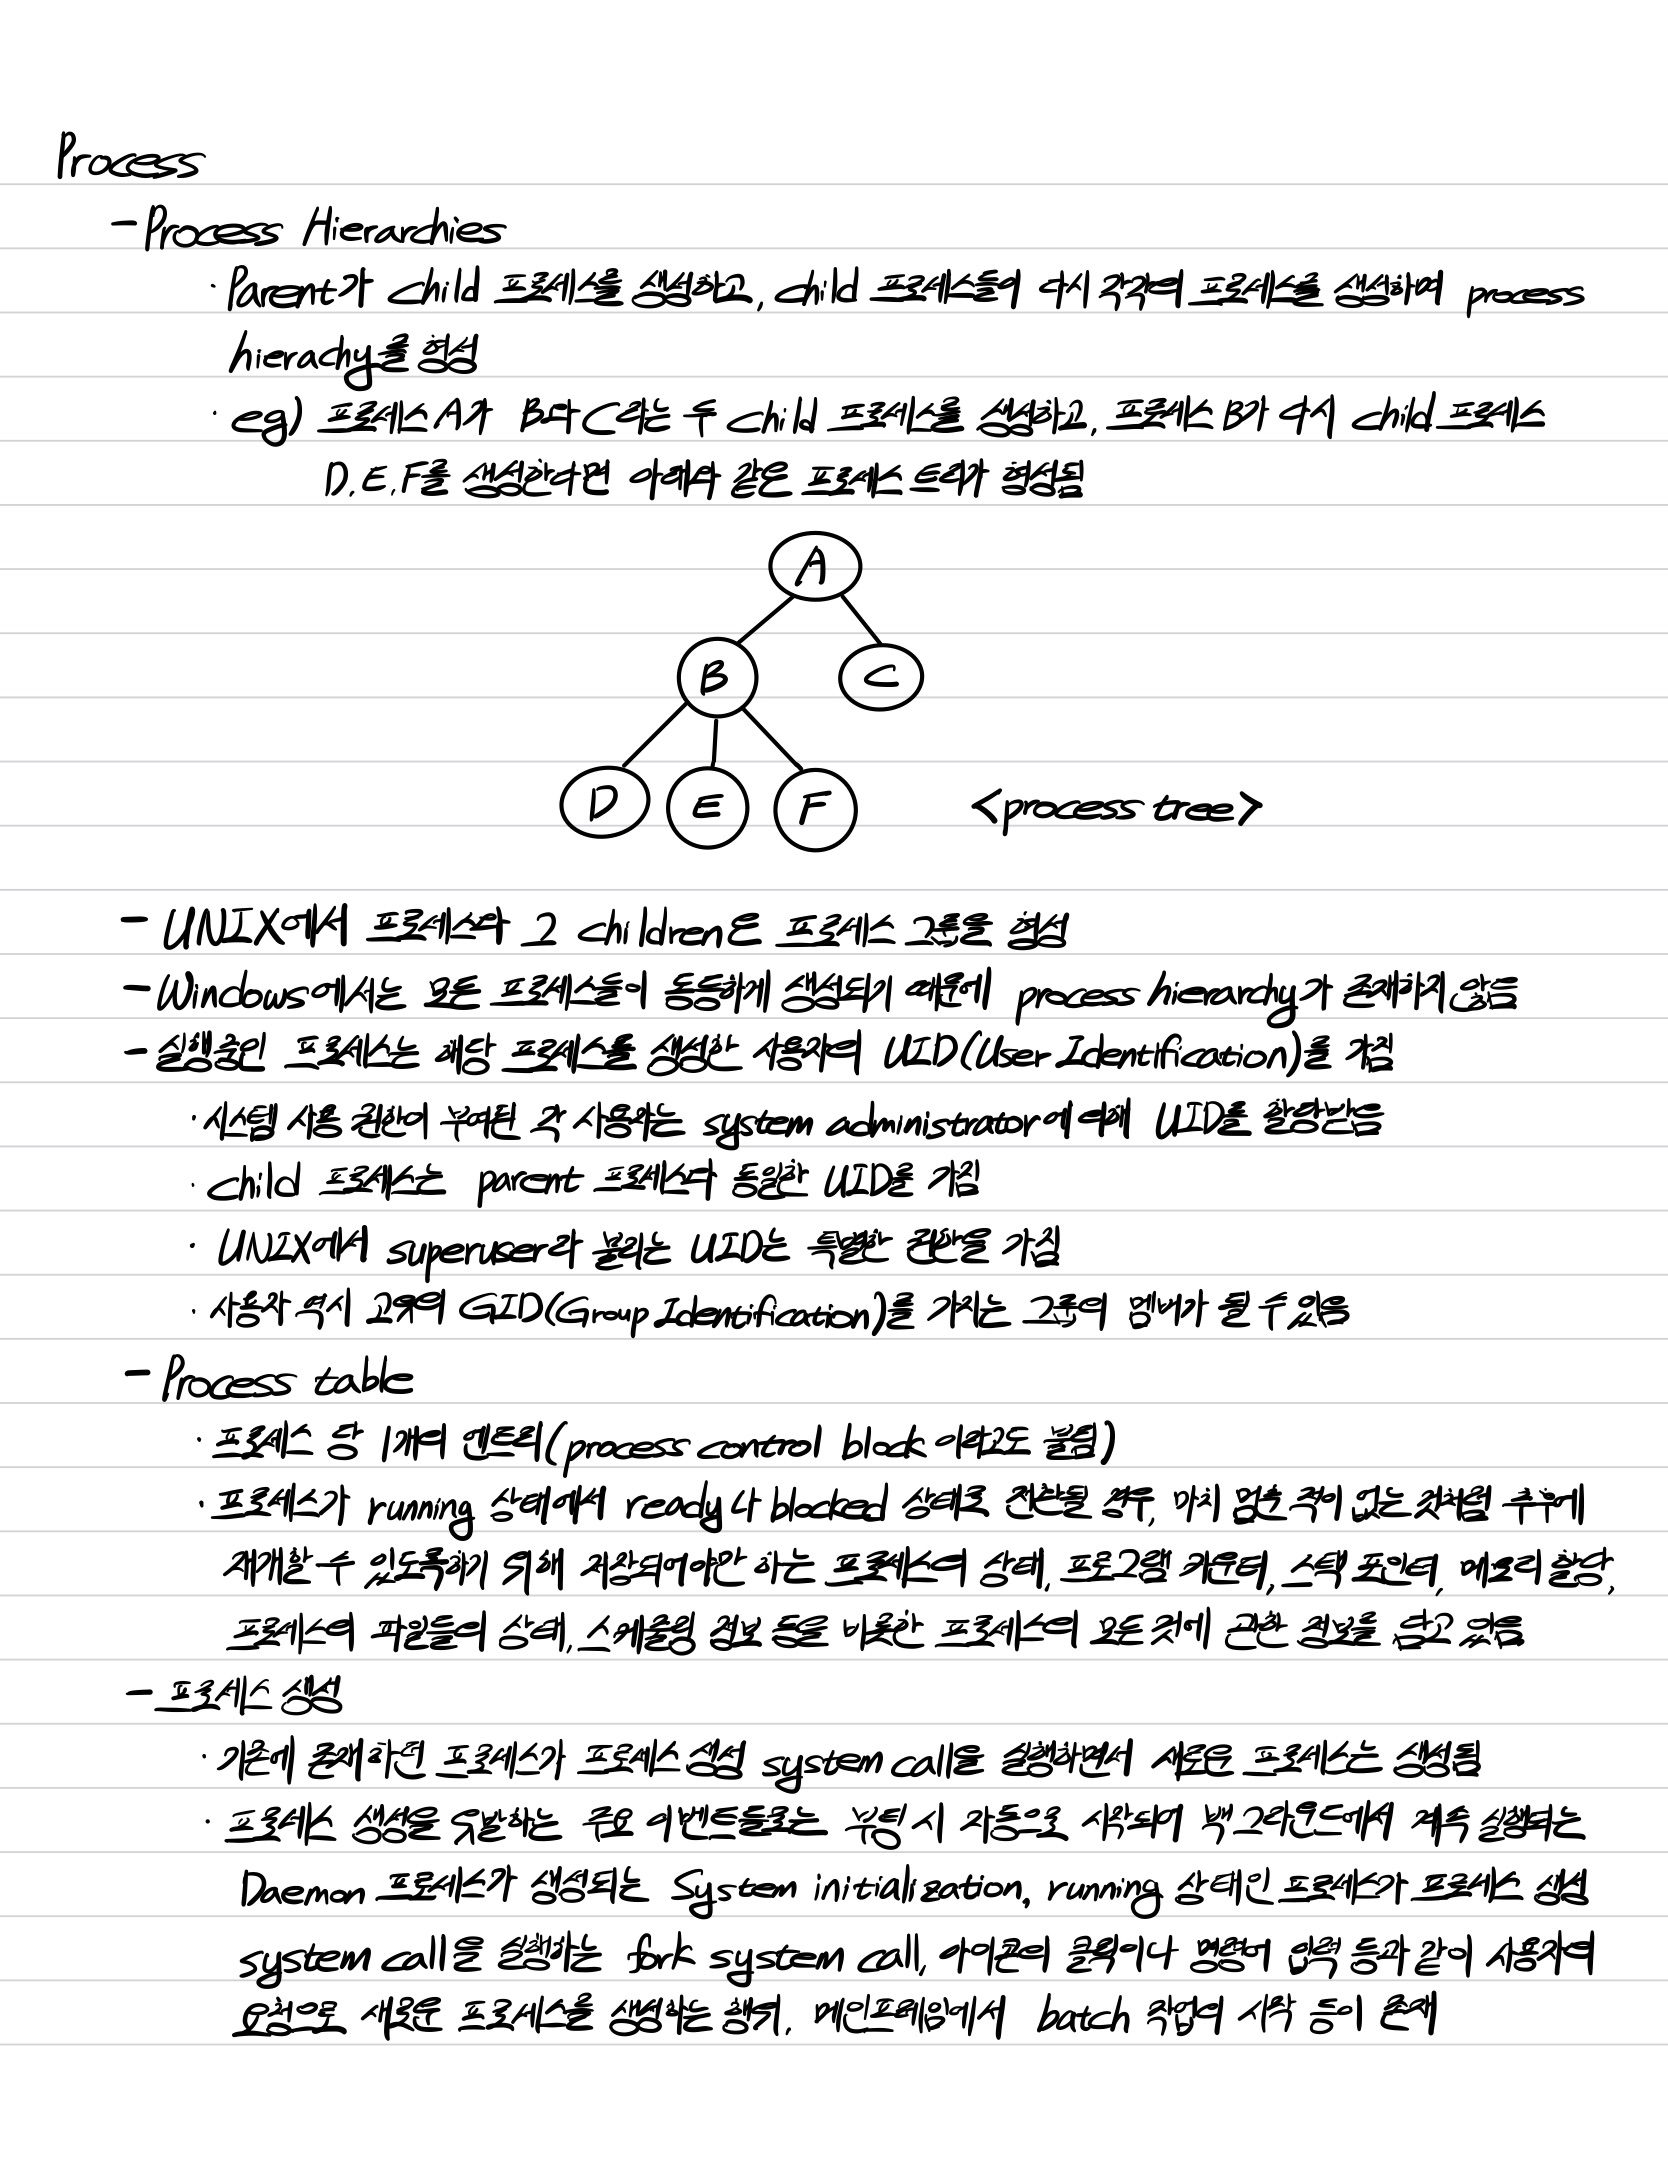 Process
- Process Hierarchies
· Parent가 child 프로세스를 생성하고, child 프로세스들이 다시 각각의 프로세스를 생성하며 process
hierachy를 형성
· eg) 프로세스 A가 B와 C라는 두 child 프로세스를 생성하고, 프로세스 B가 다시 child 프로세스
D, E, F를 생성한다면 아래와 같은 프로세스 트리가 형성됨
A
B C
D E F <process tree>
- UNIX에서 프로세스와 그 children은 프로세스 그룹을 형성
- Windows에서는 모든 프로세스들이 동등하게 생성되기 때문에 process hierarchy가 존재하지 않음
- 실행중인 프로세스는 해당 프로세스를 생성한 사용자의 UID(User Identification)를 가짐
· 시스템 사용 권한이 부여된 각 사용자는 system administrator에 의해 UID를 할당받음
· child 프로세스는 parent 프로세스와 동일한 UID를 가짐
· UNIX에서 superuser라 불리는 UID는 특별한 권한을 가짐
· 사용자 역시 고유의 GID(Group Identification)를 가지는 그룹의 멤버가 될 수 있음
- Process table
· 프로세스 당 1개의 엔트리(process control block 이라고도 불림)
· 프로세스가 running 상태에서 ready나 blocked 상태로 전환될 경우, 마치 멈춘 적이 없는 것처럼 추후에
재개할 수 있도록하기 위해 저장되어야만 하는 프로세스의 상태, 프로그램 카운터, 스택 포인터, 메모리 할당,
프로세스의 파일들의 상태, 스케줄링 정보 등을 비롯한 프로세스의 모든 것에 관한 정보를 담고 있음
- 프로세스 생성
· 기존에 존재하던 프로세스가 프로세스 생성 system call을 실행하면서 새로운 프로세스는 생성됨
· 프로세스 생성을 유발하는 주요 이벤트들로는 부팅 시 자동으로 시작되어 백그라운드에서 계속 실행되는
Daemon 프로세스가 생성되는 System initialization, running 상태인 프로세스가 프로세스 생성
system call을 실행하는 fork system call, 아이콘의 클릭이나 명령어 입력 등과 같이 사용자의
요청으로 새로운 프로세스를 생성하는 행위, 메인프레임에서 batch 작업의 시작 등이 존재